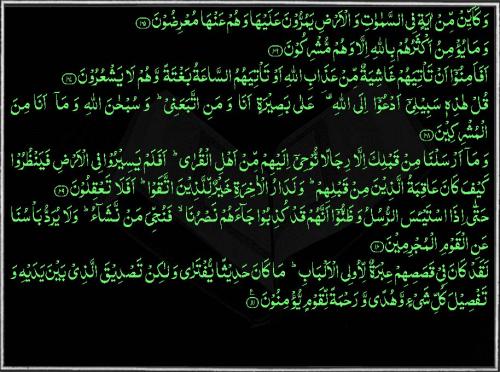 وَكَاَيِّنْ مِّنْ اٰيَةٍ فِى السَّمٰوٰتِ وَ الْاَرْضِ يَمُرُّوْنَ عَلَيْهَا وَ هُمْ عَنْهَا مُعْرِضُوْنَ ﴿۱۰۵﴾
وَمَا يُؤْمِنُ اَكْثَرُهُمْ بِاللّٰهِ اِلَّا وَهُمْ مُّشْرِكُوْنَ ﴿۱۰۶﴾
اَفَاَمِنُوْۤا اَنْ تَاْتِيَهُمْ غَاشِيَةٌ مِّنْ عَذَابِ اللّٰهِ اَوْ تَاْتِيَهُمُ السَّاعَةُ بَغْتَةً وَّهُمْ لَا يَشْعُرُوْنَ ﴿۱۰۷﴾
قُلْ هٰذِهٖ سَبِيْلِىْۤ اَدْعُوْۤا اِلَى اللّٰهِ ؔ عَلٰى بَصِيْرَةٍ اَنَا وَ مَنِ اتَّبَعَنِىْ ؕ وَ سُبْحٰنَ اللّٰهِ وَ مَاۤ اَنَا مِنَ
الْمُشْرِكِيْنَ ﴿۱۰۸﴾
وَ مَاۤ اَرْسَلْنَا مِنْ قَبْلِكَ اِلَّا رِجَالًا نُّوْحِىْۤ اِلَيْهِمْ مِّنْ اَهْلِ الْقُرٰى ؕ اَفَلَمْ يَسِيْرُوْا فِى الْاَرْضِ فَيَنْظُرُوْا
كَيْفَ كَانَ عَاقِبَةُ الَّذِيْنَ مِنْ قَبْلِهِمْ ؕ وَلَدَارُ الْاٰخِرَةِ خَيْرٌ لِّلَّذِيْنَ اتَّقَوْا ؕ اَفَلَا تَعْقِلُوْنَ ﴿۱۰۹﴾
حَتّٰۤى اِذَا اسْتَيْـَٔسَ الرُّسُلُ وَ ظَنُّوْۤا اَنَّهُمْ قَدْ كُذِبُوْا جَآءَهُمْ نَصْرُنَا ۙ فَنُجِّىَ مَنْ نَّشَآءُ ؕ وَلَا يُرَدُّ بَاْسُنَا
عَنِ الْقَوْمِ الْمُجْرِمِيْنَ ﴿۱۱۰﴾
لَقَدْ كَانَ فِىْ قَصَصِهِمْ عِبْرَةٌ لِّاُولِى الْاَلْبَابِ ؕ مَا كَانَ حَدِيْثًا يُّفْتَرٰى وَ لٰكِنْ تَصْدِيْقَ الَّذِىْ بَيْنَ يَدَيْهِ وَ
تَفْصِيْلَ كُلِّ شَىْءٍ وَّ هُدًى وَّ رَحْمَةً لِّقَوْمٍ يُّؤْمِنُوْنَ ﴿۱۱۱﴾